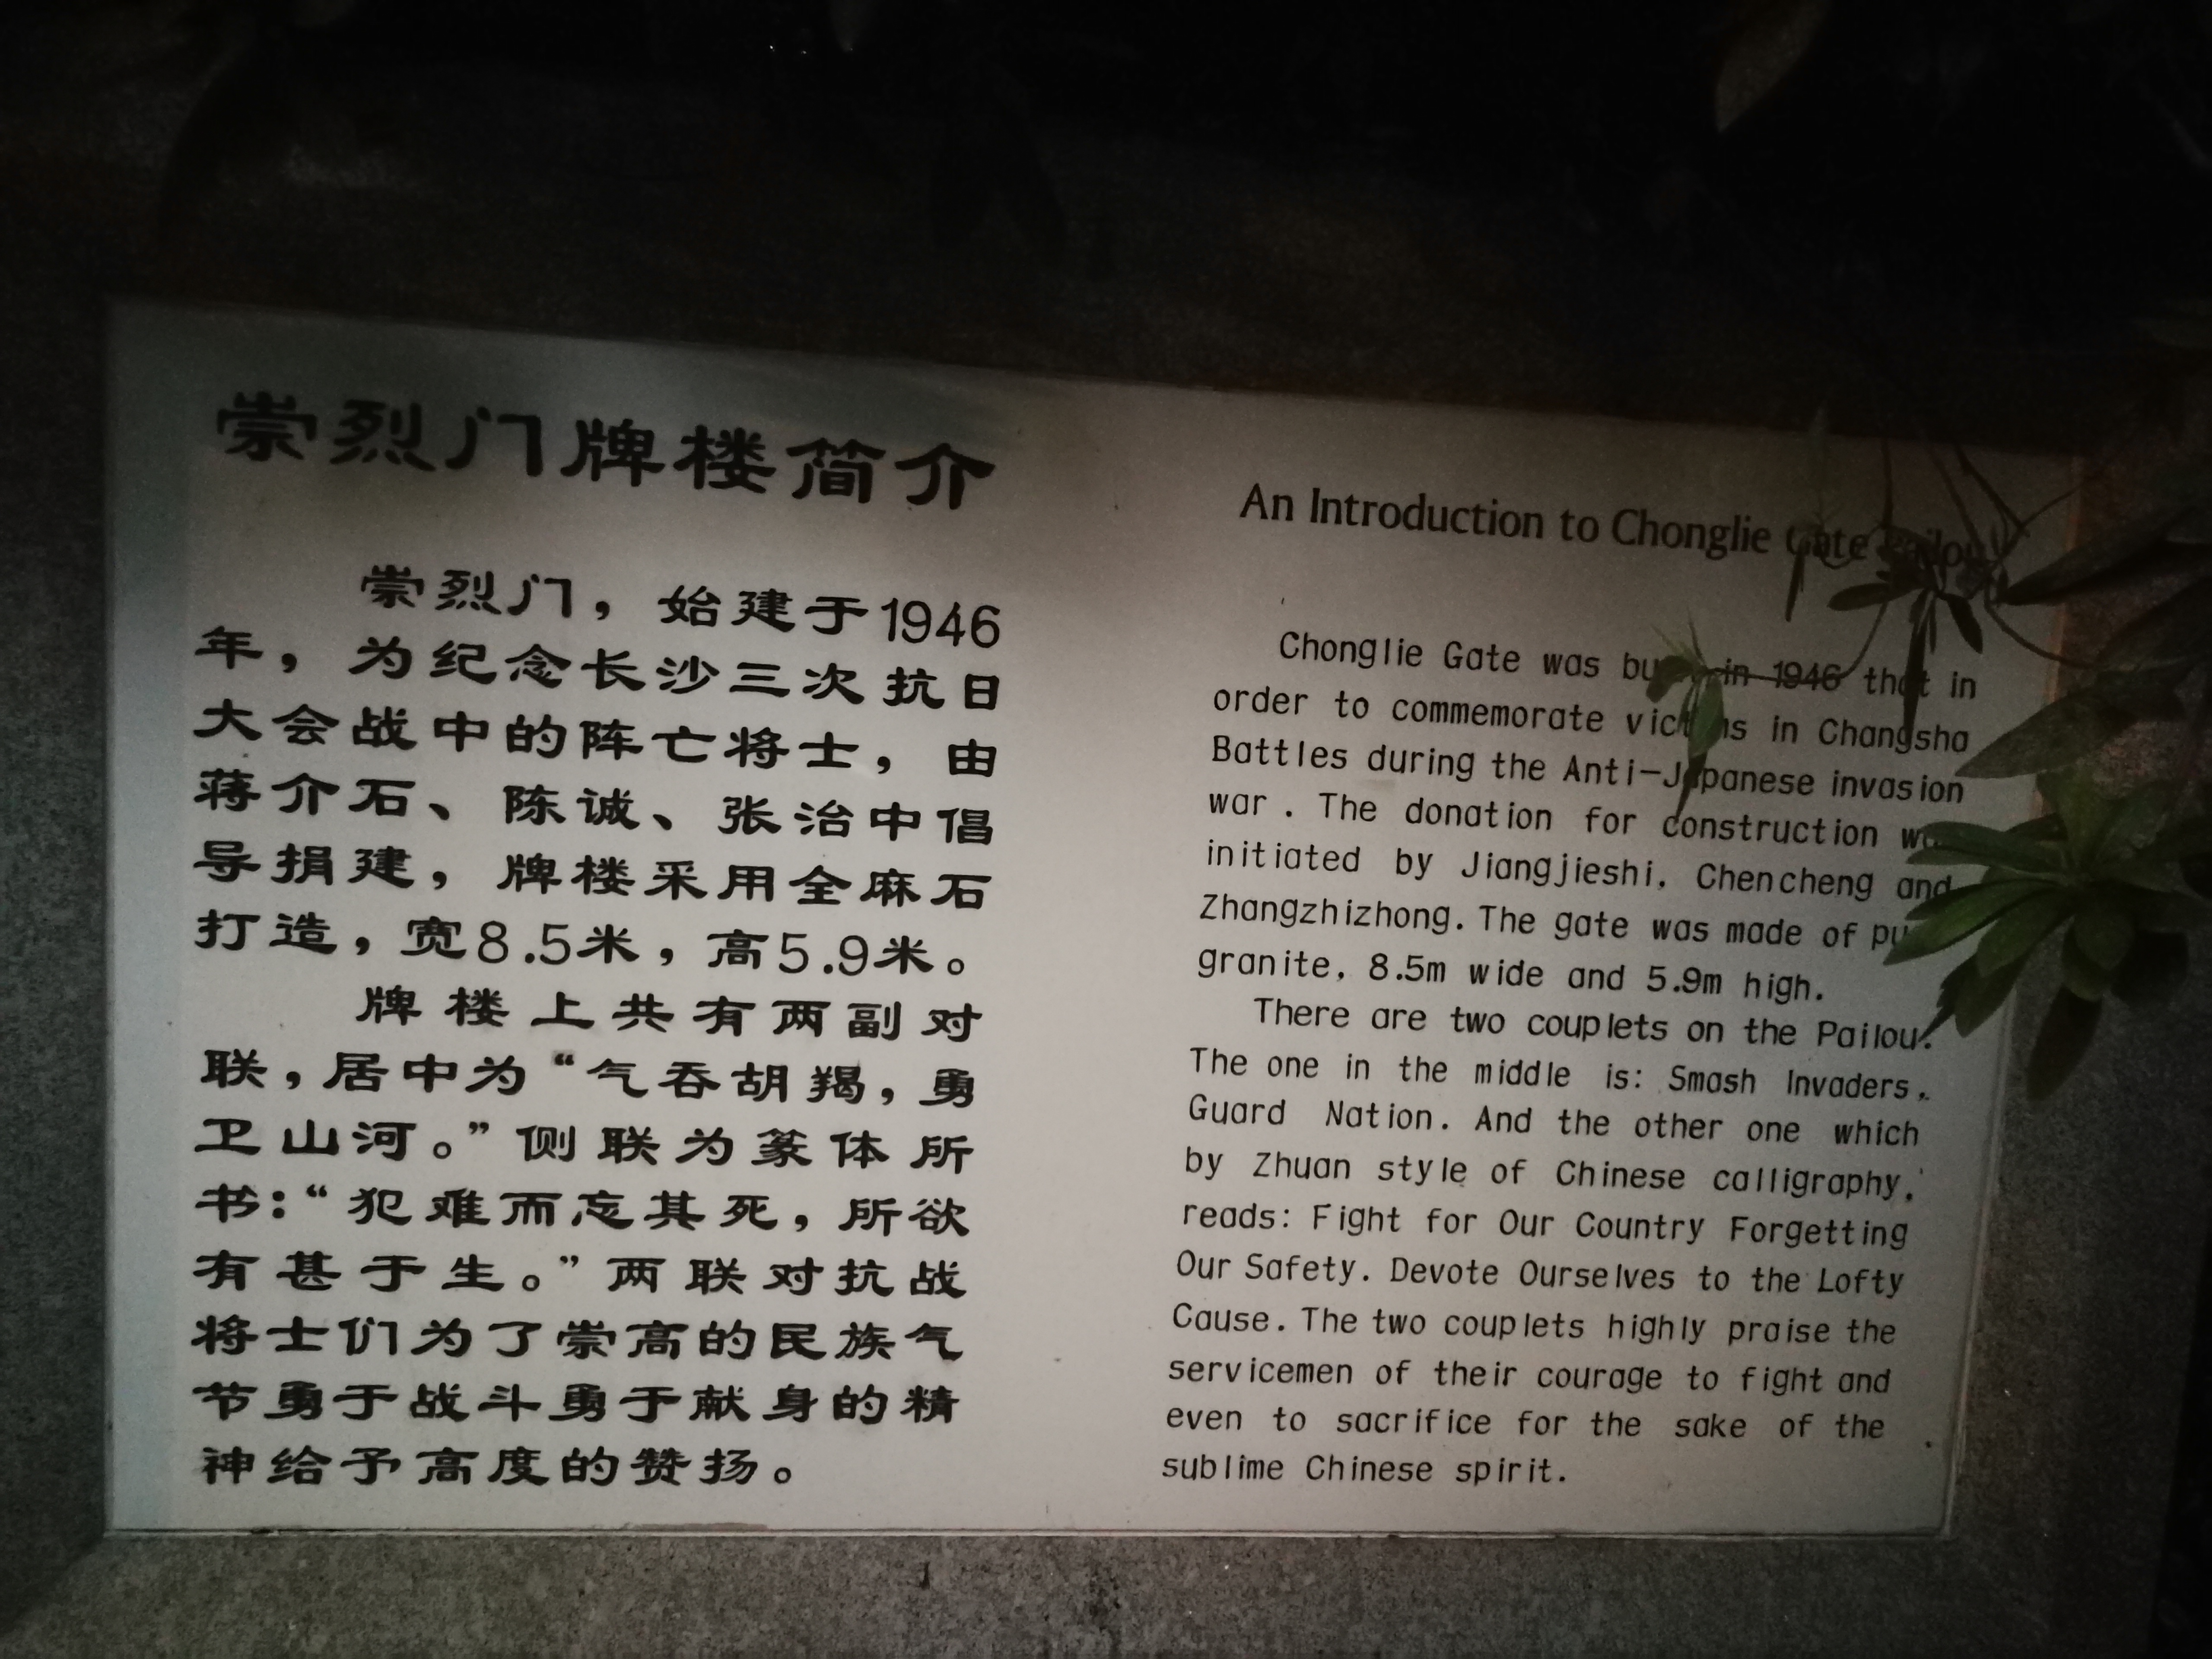 崇烈门牌楼简介
崇烈门，始建于1946
年，为纪念长沙三次抗日
大会战中的阵亡将士，由
蒋介石、陈诚、张治中倡
导捐建，牌楼采用全麻石
打造，宽8.5米，高5.9米。
牌楼上共有两副对
联，居中为“气吞胡羯，勇
卫山河。”侧联为篆体所
书：“犯难而忘其死，所欲
有甚于生。”两联对抗战
将士们为了崇高的民族气
节勇于战斗勇于献身的精
神给予高度的赞扬。
An Introduction to Chonglie Gate Pailou
Chonglie Gate was in 1946 that in
order to commemorate victims in Changsha
Battles during the Anti-Japanese invasion
war. The donation for construction
initiated by Jiangjieshi, Chencheng and
Zhangzhizhong. The gate was made of
granite, 8.5m wide and 5.9m high.
There are two couplets on the Pailou.
The one in the middle is: Smash Invaders,
Guard Nation. And the other one which
by Zhuan style of Chinese calligraphy,
reads: Fight for Our Country Forgetting
Our Safety. Devote Ourselves to the Lofty
Cause. The two couplets highly praise the
servicemen of their courage to fight and
even to sacrifice for the sake of the
sublime Chinese spirit.